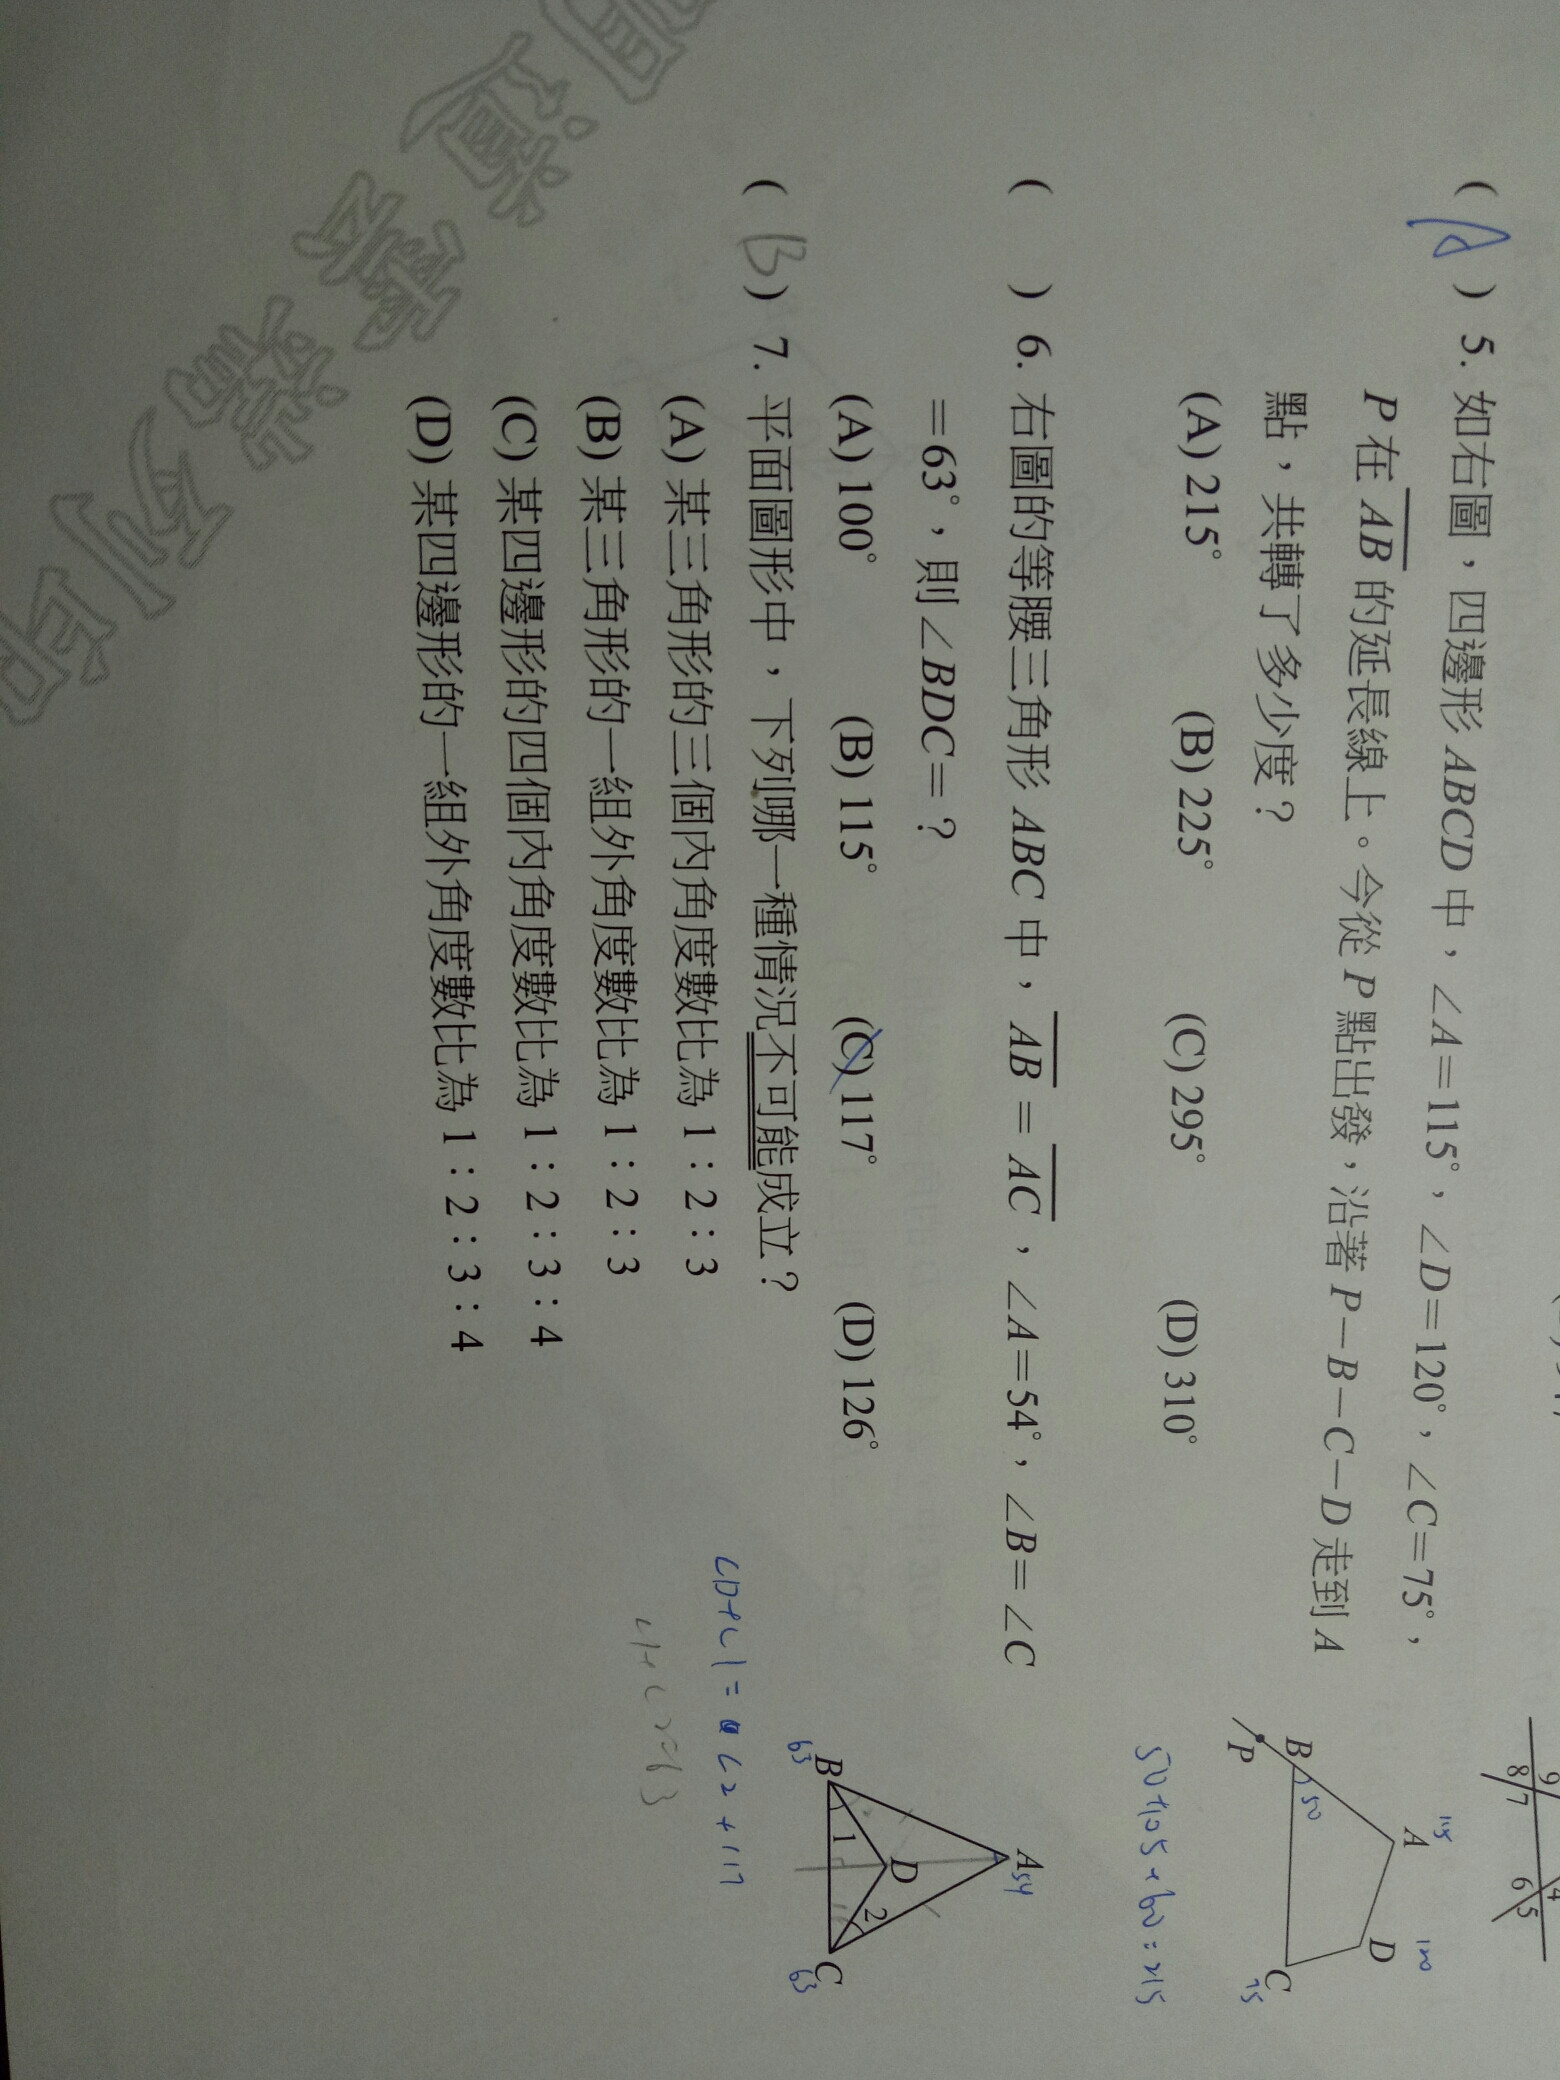 ( A ) 5. 如右圖，四邊形 ABCD 中，∠A＝115°，∠D＝120°，∠C＝75°，
P 在 AB 的延長線上。今從 P 點出發，沿著 P－B－C－D 走到 A
點，共轉了多少度？
(A) 215° (B) 225° (C) 295° (D) 310°
9 8 7 4 6 5
A 115
D 120
B 50
P
C 75
50+105+60=215
( ) 6. 右圖的等腰三角形 ABC 中，AB＝AC，∠A＝54°，∠B＝∠C
＝63°，則∠BDC＝？
(A) 100° (B) 115° (C) 117° (D) 126°
A 54
D
1 2
B 63
C 63
( B ) 7. 平面圖形中，下列哪一種情況不可能成立？
(A) 某三角形的三個內角度數比為 1：2：3
(B) 某三角形的一組外角度數比為 1：2：3
(C) 某四邊形的四個內角度數比為 1：2：3：4
(D) 某四邊形的一組外角度數比為 1：2：3：4
∠D+∠1= ∠2+117